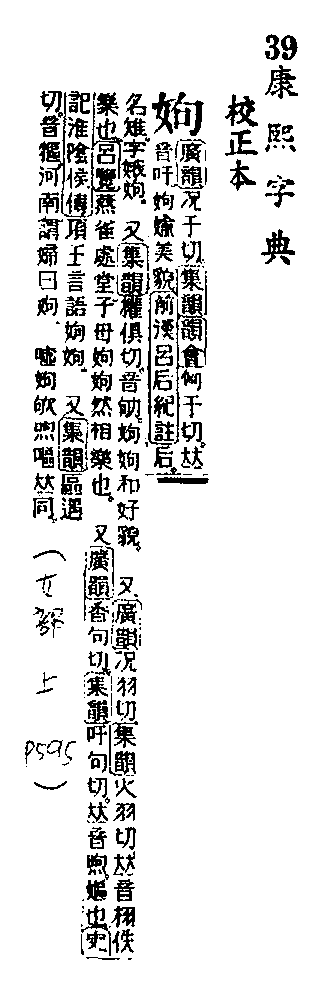 39康熙字典
校正本
姁
廣韻况于切集韻韻會匈于切𠀤
音吁姁婾美貌前漢呂后紀註后
名雉字娥姁。又集韻權俱切音劬姁姁和好貌。又廣韻况羽切集韻火羽切𠀤音栩佚
樂也呂覽燕雀處堂子母姁姁然相樂也。又廣韻香句切集韻吁句切𠀤音煦嫗也史
記淮陰侯傳項王言語姁姁。又集韻區遇
切音驅河南謂婦曰姁。嘘姁欨煦嘔𠀤同。
(女部上 P595)